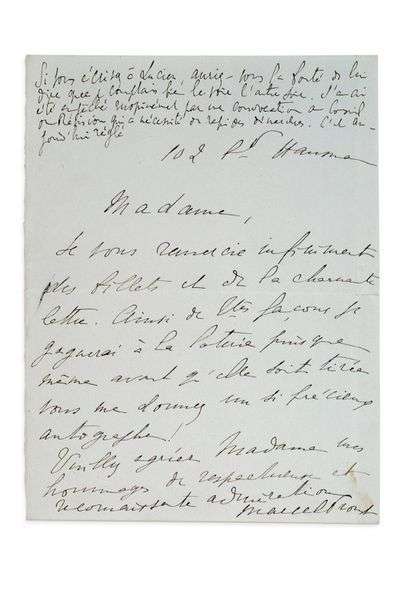 Si vous écrivez à Lucien, auriez-vous la bonté de lui
dire que je comptais bien le voir l'autre soir. J'en ai
été empêché inopinément par une convocation à Conseil
de Révision qui a nécessité de rapides démarches. C'est au-
jourd'hui réglé
102 Bd Hausman
Madame,
Je vous remercie infiniment
des billets et de la charmante
lettre. Ainsi de ttes façons je
gagnerai à la loterie puisque
même avant qu'elle soit tirée
vous me donnez un si précieux
autographe !
Veuillez agréer Madame mes
hommages de respectueuse et
reconnaissante admiration
Marcel Proust